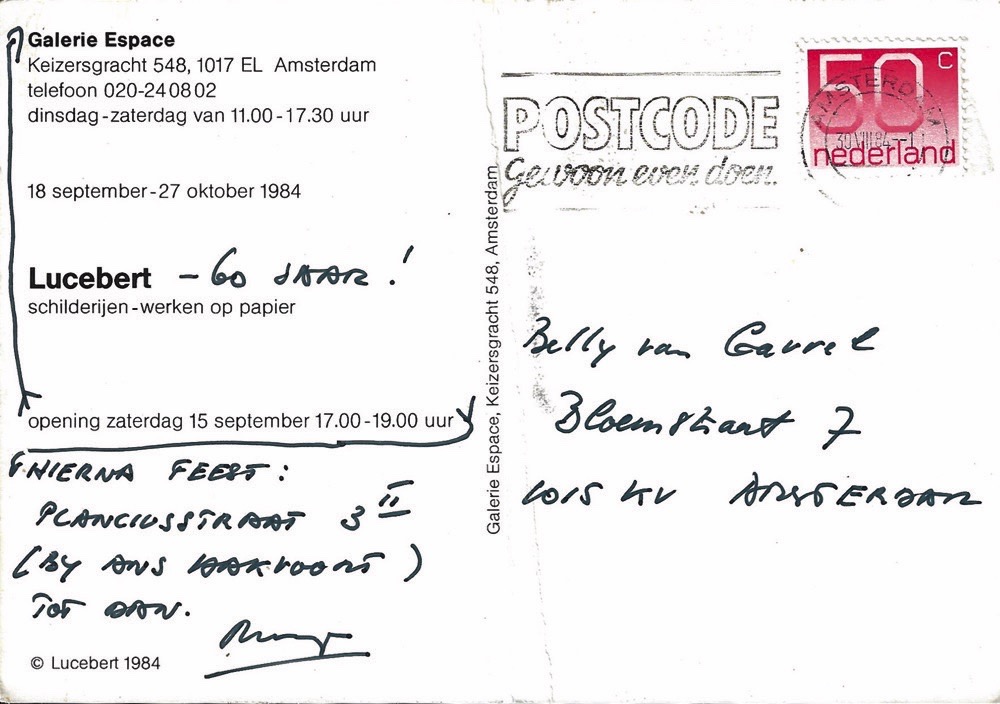 Galerie Espace
Keizersgracht 548, 1017 EL Amsterdam
telefoon 020-240802
dinsdag-zaterdag van 11.00-17.30 uur
18 september-27 oktober 1984
Lucebert – 60 JAAR!
schilderijen-werken op papier
opening zaterdag 15 september 17.00-19.00 uur
HIERNA FEEST:
PLANCIUSSTRAAT 3 II
(BY ANS HAKVOORT)
TOT DAN.
© Lucebert 1984
Galerie Espace, Keizersgracht 548, Amsterdam
POSTCODE
Gewoon even doen.
50 c
nederland
AMSTERDAM
30 VIII 84
Belly van Garrel
Bloemstraat 7
1015 KV AMSTERDAM